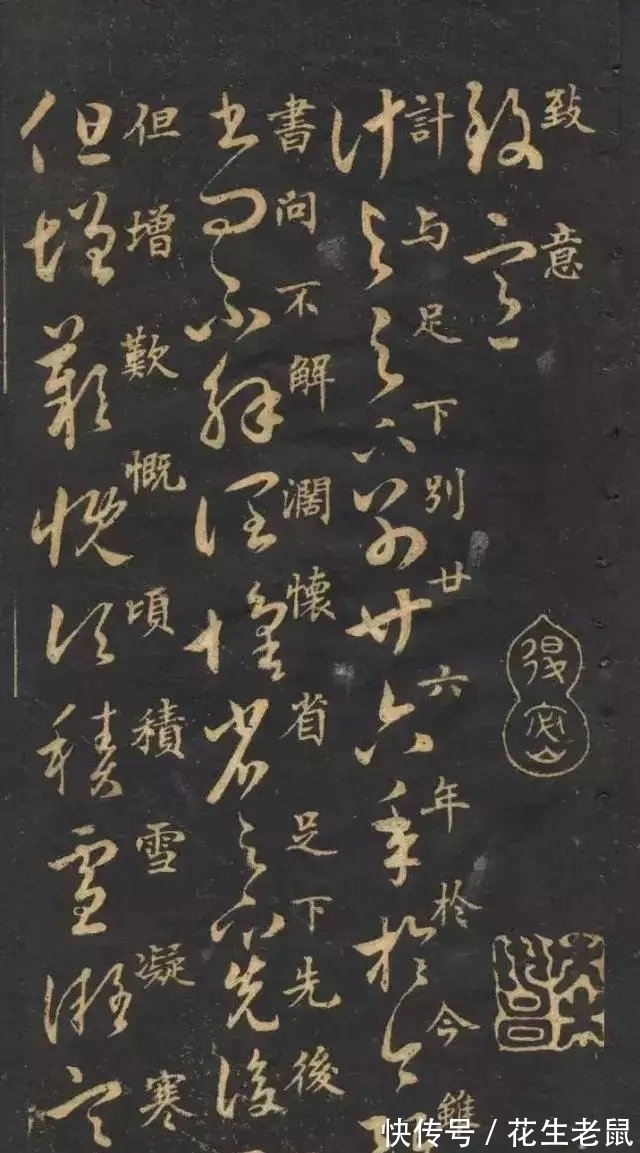 致意
致意
計与足下別廿六年於今雖
計与足下別廿六年於今
書問不解闊懷省足下先後
書問不解闊懷省足下先後
但增歎慨頃積雪凝寒
但增歎慨頃積雪凝寒
快传号 / 花生老鼠